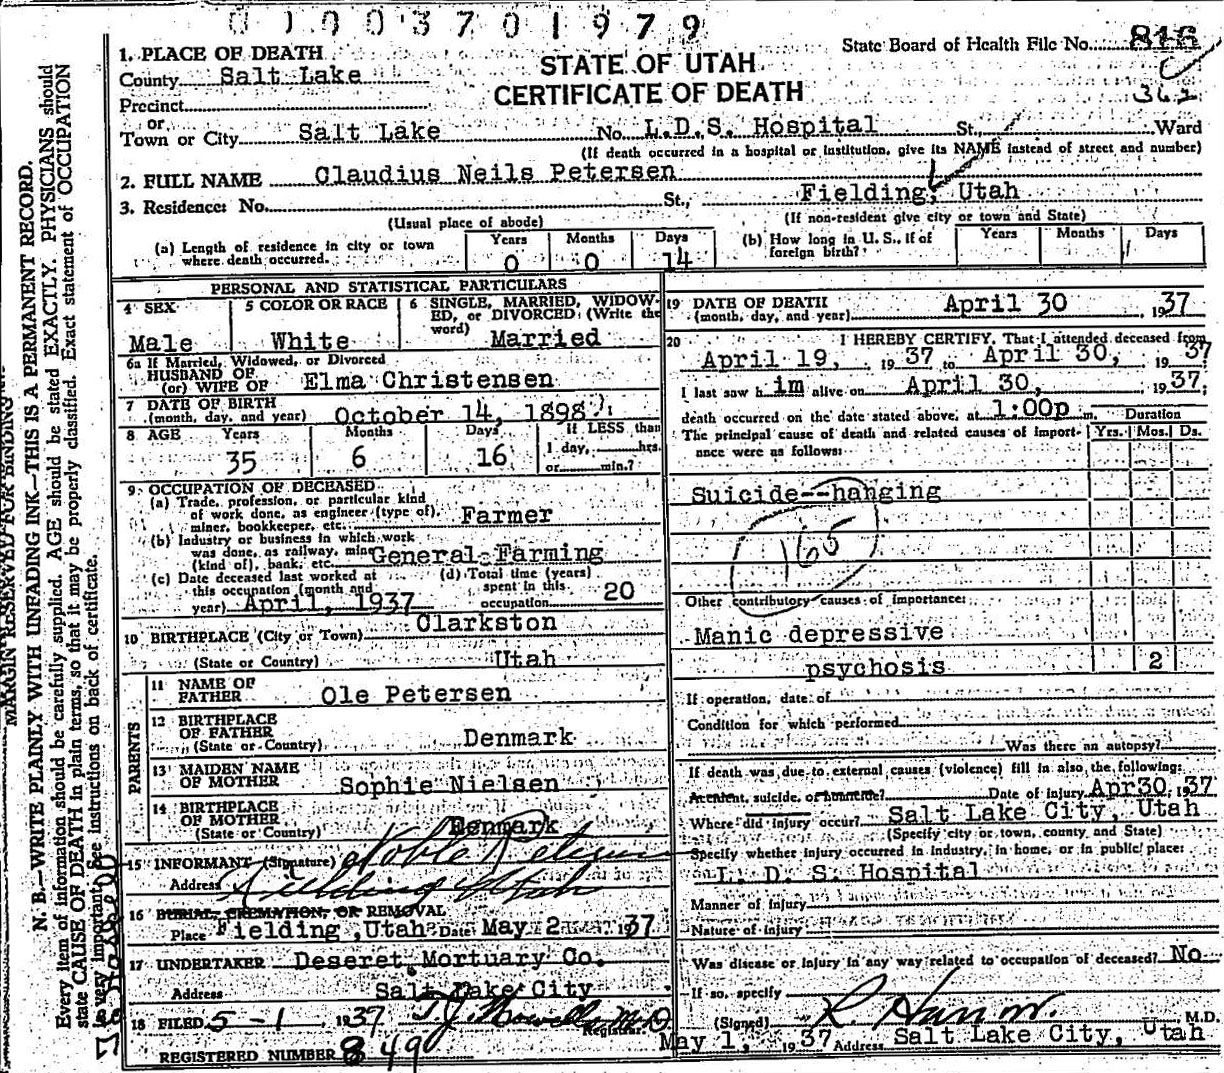 0 1 0 0 3 7 0 1 9 7 9
State Board of Health File No. 816
362
STATE OF UTAH
CERTIFICATE OF DEATH
1. PLACE OF DEATH
County Salt Lake
Precinct
or
Town or City Salt Lake No. L.D.S. Hospital St., Ward
(If death occurred in a hospital or institution, give its NAME instead of street and number)
2. FULL NAME Claudius Neils Petersen
3. Residence: No. St., Fielding, Utah
(Usual place of abode) (If non-resident give city or town and State)
(a) Length of residence in city or town where death occurred. Years 0 Months 0 Days 14
(b) How long in U. S., if of foreign birth? Years Months Days
PERSONAL AND STATISTICAL PARTICULARS
4 SEX Male
5 COLOR OR RACE White
6 SINGLE, MARRIED, WIDOW-
ED, or DIVORCED (Write the
word) Married
6a If Married, Widowed, or Divorced
HUSBAND OF
(or) WIFE OF Elma Christensen
7 DATE OF BIRTH
(month, day, and year) October 14, 1898
8 AGE Years 35 Months 6 Days 16 If LESS than
1 day, hrs.
or min.?
9 OCCUPATION OF DECEASED
(a) Trade, profession, or particular kind
of work done, as engineer (type of),
miner, bookkeeper, etc. Farmer
(b) Industry or business in which work
was done, as railway, mine
(kind of), bank, etc. General Farming
(c) Date deceased last worked at
this occupation (month and
year) April, 1937
(d) Total time (years)
spent in this
occupation 20
10 BIRTHPLACE (City or Town) Clarkston
(State or Country) Utah
PARENTS
11 NAME OF
FATHER Ole Petersen
12 BIRTHPLACE
OF FATHER
(State or Country) Denmark
13 MAIDEN NAME
OF MOTHER Sophie Nielsen
14 BIRTHPLACE
OF MOTHER
(State or Country) Denmark
15 INFORMANT (Signature) Noble Petersen
Address Fielding Utah
16 BURIAL, CREMATION, OR REMOVAL
Place Fielding, Utah Date May 2 1937
17 UNDERTAKER Deseret Mortuary Co.
Address Salt Lake City
18 FILED 5-1 1937 T.J. Howells M.D.
Registrar
REGISTERED NUMBER 849
19 DATE OF DEATH
(month, day, and year) April 30 1937
20 I HEREBY CERTIFY, That I attended deceased from
April 19, 1937 to April 30, 1937
I last saw him alive on April 30, 1937;
death occurred on the date stated above, at 1:00p m. Duration
The principal cause of death and related causes of import-
ance were as follows: Yrs. Mos. Ds.
Suicide--hanging
165
Other contributory causes of importance:
Manic depressive
psychosis 2
If operation, date of
Condition for which performed
Was there an autopsy?
If death was due to external causes (violence) fill in also the following:
Accident, suicide, or homicide? Date of injury Apr 30, 1937
Where did injury occur? Salt Lake City, Utah
(Specify city or town, county and State)
Specify whether injury occurred in industry, in home, or in public place:
L. D. S. Hospital
Manner of injury
Nature of injury
Was disease or injury in any way related to occupation of deceased? No
If so, specify
(Signed) M.D.
May 1, 1937 Address Salt Lake City, Utah
MARGIN RESERVED FOR BINDING
N. B.—WRITE PLAINLY WITH UNFADING INK—THIS IS A PERMANENT RECORD.
Every item of information should be carefully supplied. AGE should be stated EXACTLY. PHYSICIANS should
state CAUSE OF DEATH in plain terms, so that it may be properly classified. Exact statement of OCCUPATION
is very important. See instructions on back of certificate.